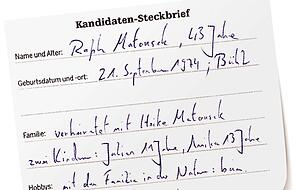 Kandidaten-Steckbrief
Name und Alter: Ralph Matousek, 43 Jahre
Geburtsdatum und -ort: 21. September 1974; Bühl
Familie: verheiratet mit Heike Matousek
zwei Kinder: Julian 17 Jahre, Annika 13 Jahre
Hobbys: mit der Familie in der Natur: bum